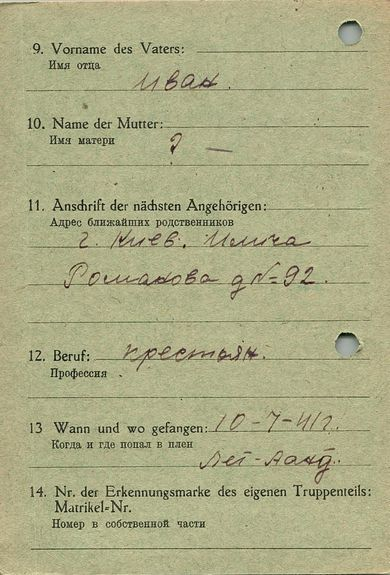 9. Vorname des Vaters:
Имя отца
Иван.
10. Name der Mutter:
Имя матери
? —
11. Anschrift der nächsten Angehörigen:
Адрес ближайших родственников
г. Киев. Илига
Романова д №=92.
12. Beruf: крестьян.
Профессия
13 Wann und wo gefangen: 10-7-41г.
Когда и где попал в плен
14. Nr. der Erkennungsmarke des eigenen Truppenteils:
Matrikel-Nr.
Номер в собственной части